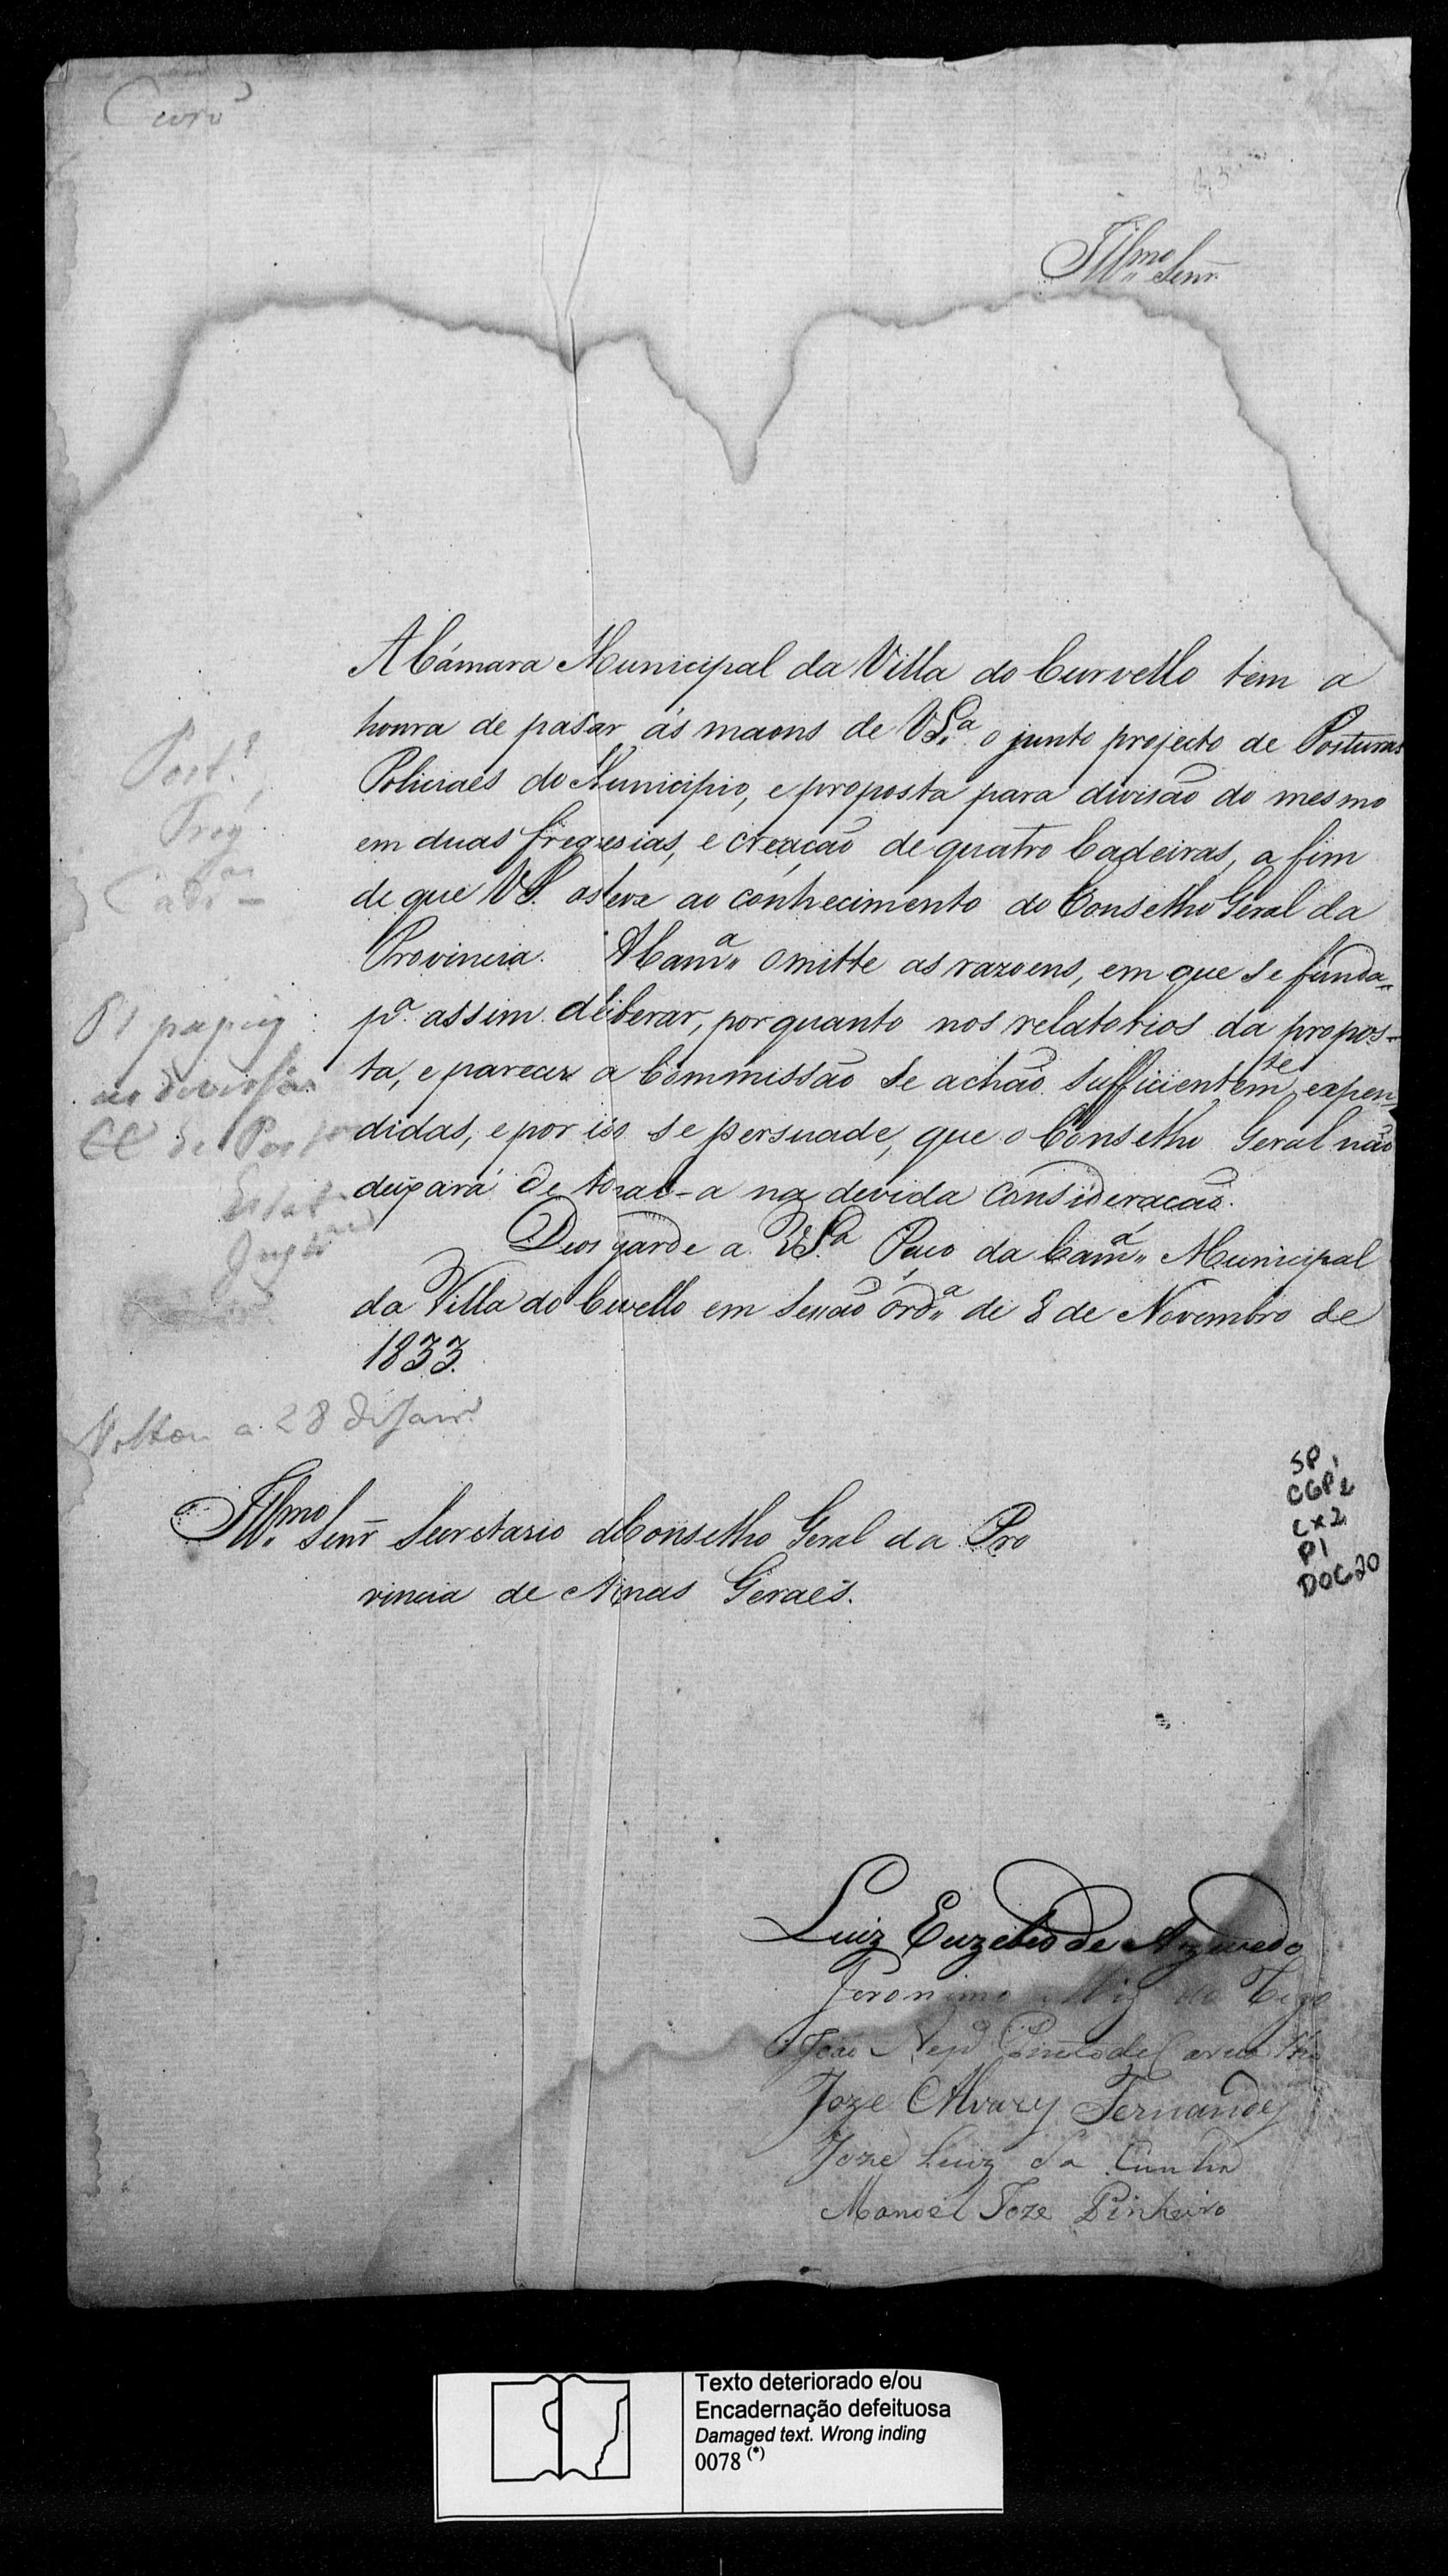 Illmo Senr
A Cámara Municipal da Villa do Curvello tem a
honra de pasar ás maons de VSª o junto projecto de Posturas
Policiaes do Municipio, e proposta para divisão do mesmo
em duas freguesias, e creação de quatro Cadeiras, a fim
de que VS. os leve ao conhecimento do Conselho Geral da
Provincia. A Camª omitte as razoens, em que se funda
pª assim deliberar, porquanto nos relatorios da propos-
ta, e parecer a Commissão se achão sufficientemte expen-
didas, e por iso se persuade, que o Conselho Geral não
deixará de tomal-a na devida consideração.
Deos garde a VSª Paço da Camª Municipal
da Villa do Curvello em Sessão ordª de 8 de Novembro de
1833.
Voltou a 28 de Janrº
Illmo Senr Secretario do Conselho Geral da Pro
vincia de Minas Geraes.
SP
CGP2
CX2
P1
DOC20
Luiz Euzebio de Azevedo
Jeronimo do Rego
João Nepº Pinto de Carvalho
Joze Alvarez Fernandes
Joze Luiz da Cunha
Manoel Joze Pinheiro
Texto deteriorado e/ou
Encadernação defeituosa
Damaged text. Wrong inding
0078 (*)